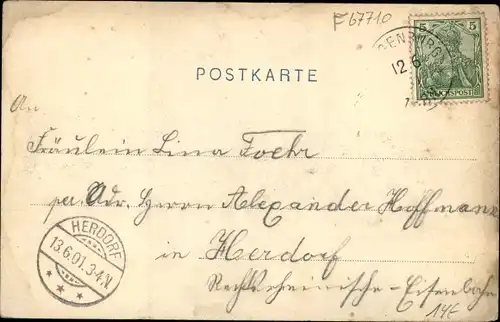 F 67710
5 5
REICHSPOST
12 6
POSTKARTE
An
Fräulein Lina Foehr
per Adr. Herrn Alexander Hoffmann
in Herdorf
Rechtsrheinische-Eisenbahn
HERDORF
13.6.01.3-4.N.
14E